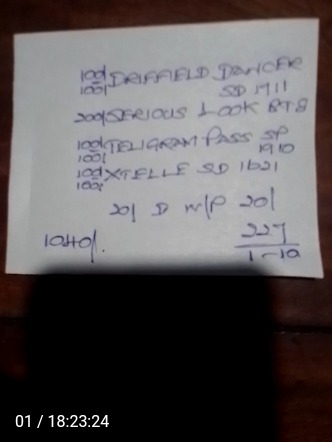 100/ DRIFFIELD DANCER
100/ SD 1911
200/ SERIOUS LOOK BTS
100/ TELIGRAM PASS SP
100/ 1910
100/ XTELLE SD 1621
100/
20/ D W/P 20/
1040/. 227
1-10
01 / 18:23:24